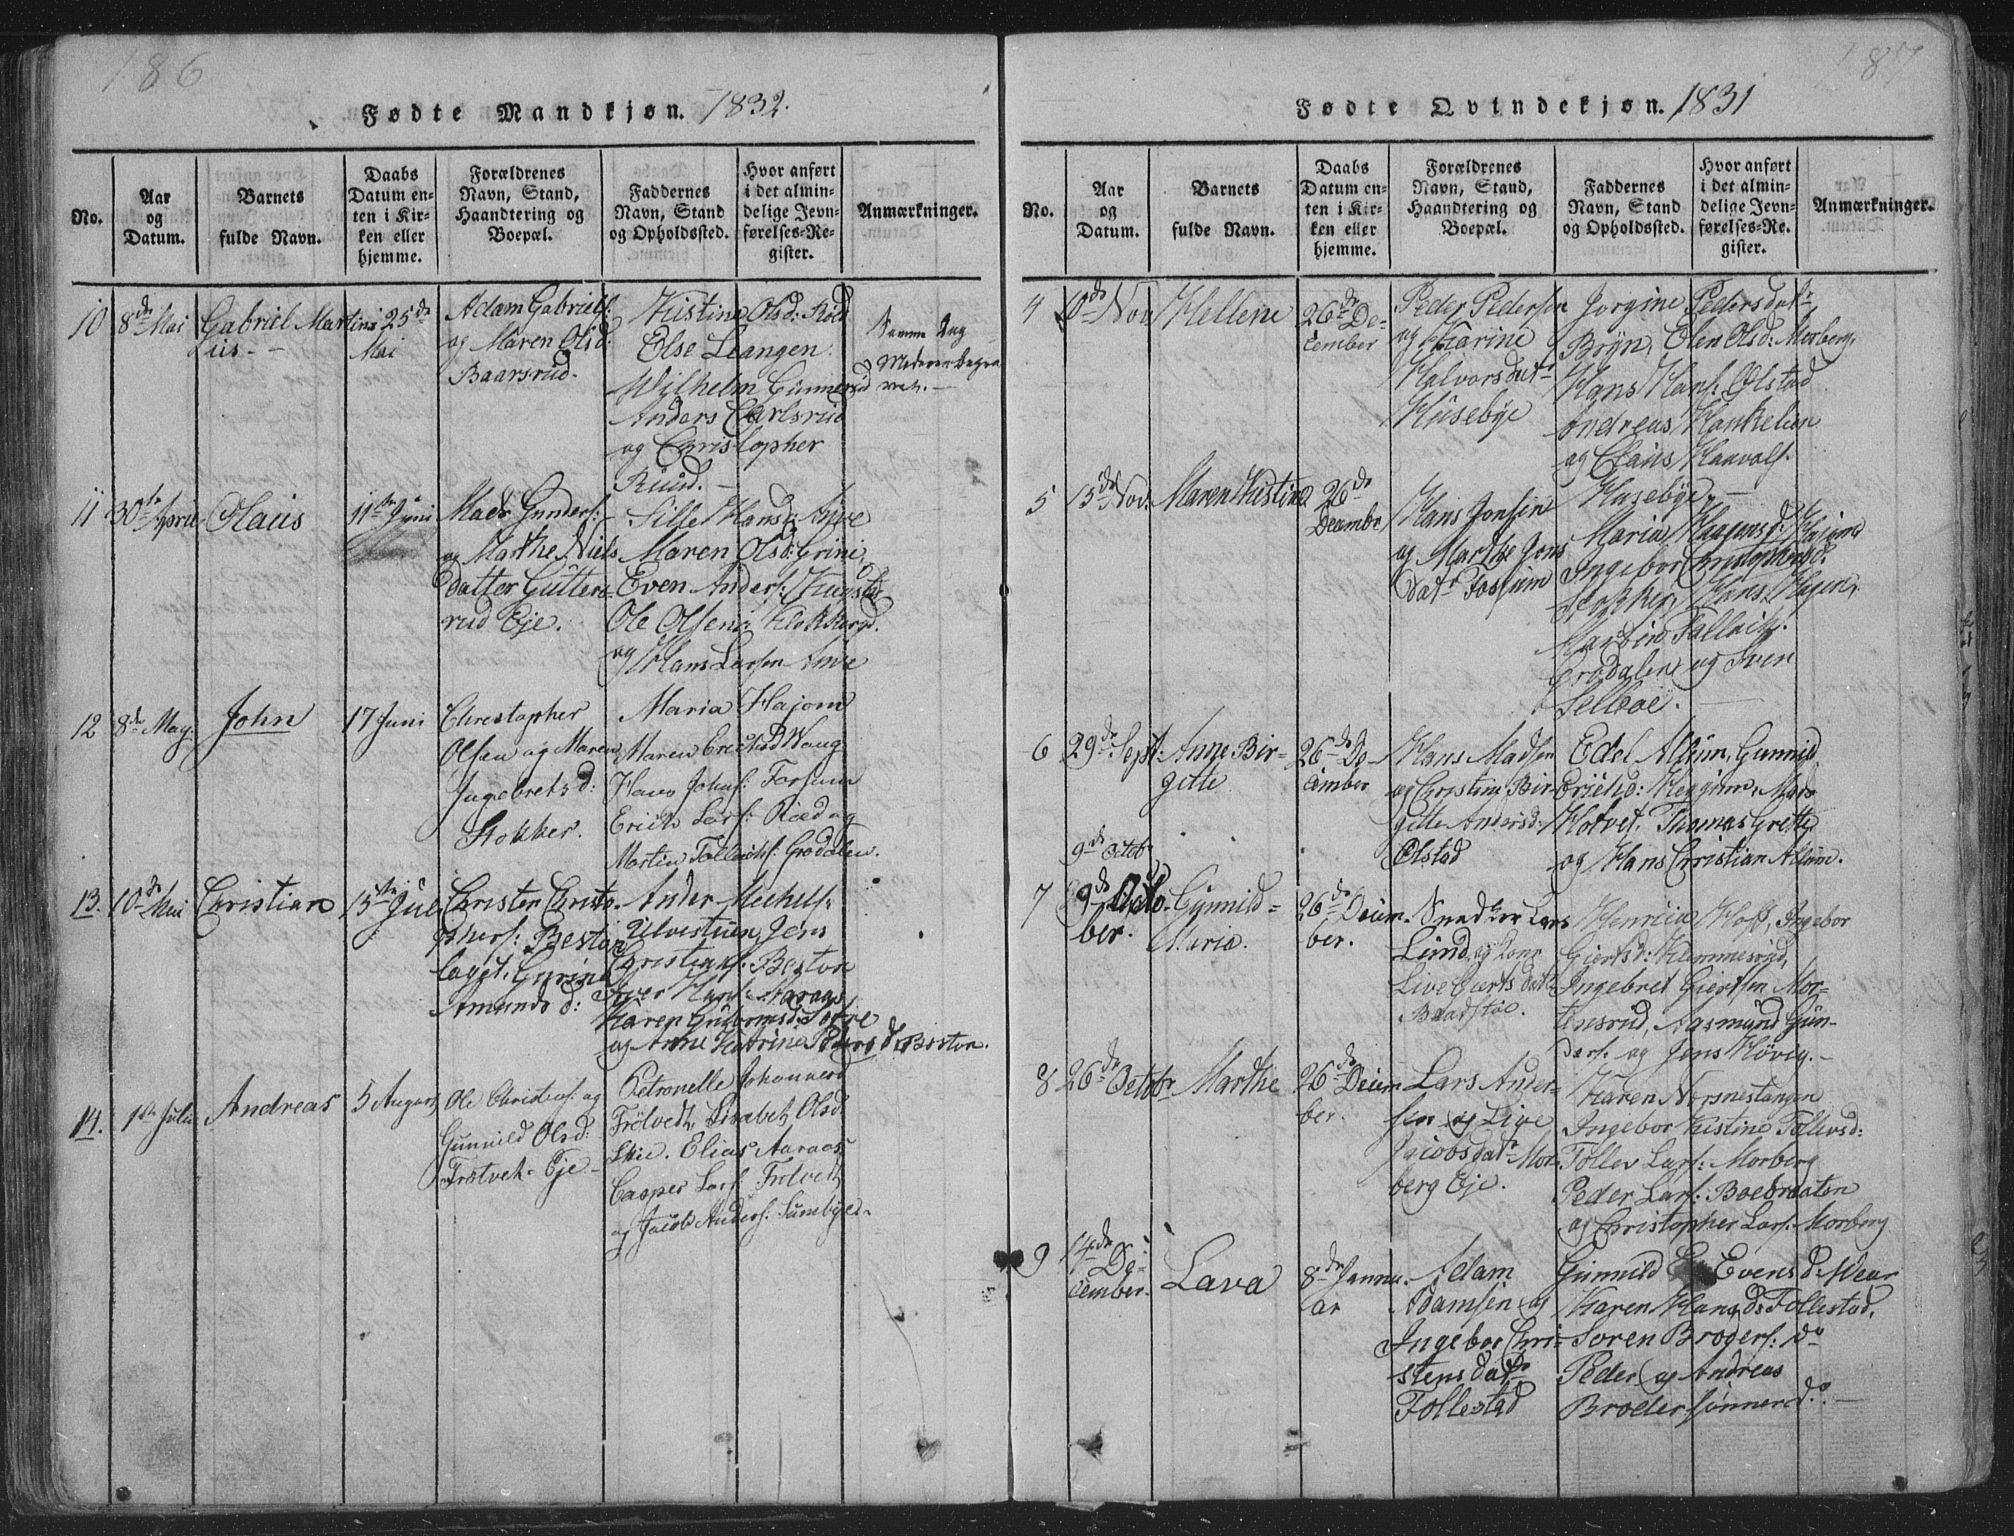 186
Fødte Mandkjøn. 1832.
No.
Aar
og
Datum.
Barnets
fulde Navn.
Daabs
Datum en-
ten i Kir-
ken eller
hjemme.
Forældrenes
Navn, Stand,
Haandtering og
Boepæl.
Faddernes
Navn, Stand
og Opholdssted.
Hvor anført
i det almin-
delige Jevn-
førelses-Re-
gister.
Anmærkninger.
10
8de Mai
Gabriel Martini-
us
25de
Mai
Adam Gabriels:
og Maren Olsd:
Baarsrud.
Kistine Olsd: Röd
Else Leangen
Wilhelm Gunnerud
Anders Carlsrud
og Christopher
Ruud.
Samme Dag
Moderen begra
vet.
11
30te April
Olaus
11te Juni
Mads Gunders:
og Marthe Niels
datter Gutters-
rud Eje.
Sille Hansd:
Maren Olsd: Grini
Even Anders:
Ole Olsen
og Hans Larsen
12
8de May
John
17 Juni
Christopher
Olsen og Maren
Ingebretsd:
Stokker.
Maria Hajom
Maren Ericksd
Hans Johns: Fossum
Erich Lars: Röed og
Martin Tollachs: Grodalen.
13.
10de Mai
Christian
15de Jul
Christen Christo-
phers: Beston
Gurine
Amunds d:
Ander Michels:
Ulvestuen, Jens
Christians: Beston
Iver Hans: Aaraas
Karen
og Anne Katrine Peders d: Beston.
14.
1ste Julii
Andreas
5 August
Ole Christens: og
Gunnild Olsd:
Frötvet Eje
Petronelle Johannesd
Frölvedt, Lisabet Olsd.
Skie. Elias Aaraas
Casper Lars: Frölvedt
og Jacob Anders:
187
Fødte Qvindekjøn. 1831
No.
Aar
og
Datum.
Barnets
fulde Navn.
Daabs
Datum en-
ten i Kir-
ken eller
hjemme.
Forældrenes
Navn, Stand,
Haandtering og
Boepæl.
Faddernes
Navn, Stand
og Opholdssted.
Hvor anført
i det almin-
delige Jevn-
førelses-Re-
gister.
Anmærkninger.
4
10de Nov
Hellene
26de De-
cember
Peder Pedersen
og Karine
Halvorsdatr
Husebÿe
Jorgine Pedersdatr
Brÿn, Elen Olsd: Morberg,
Hans Hans: Olstad
Andreas
og Claus Haavals:
Husebÿe
5
15de Nov.
Maren Kistine
26de
Decembr
Hans Jonsen
og Marthe Jons
datr Fossum
Maria Haagensd: Hajum
Ingebor Christophersd:
Stokker, Hans Hagen,
Martin Tollachs:
Grodalen og Sven
Selboe.
6
29de Sept:
Anne Bir-
gitte
26de De-
cember
Hans Madsen
og Christine Bir-
gitte Andersd:
Olstad
Edel Ahlum, Gunnild
Erichsd: Mads
Hotvet, Thomas Grette
og Hans Christian Ahlum.
9de Octob
7
9de Octo-
ber.
Gunnild
Maria.
26de Decem-
ber.
Snedker Lars
Lund, og Kone
Live datr
Baadstøe.
Henrica Hoff, Ingebor
Giertsd: Hemmesrud,
Ingebret Giertsen Mor-
tensrud, Aasmund Gun-
ders: og Jens Hövig.
8
26de Octobr
Marthe
26de Decem
ber.
Lars Ander-
sen og Live
Jacobsdatr Mor-
berg Eje.
Karen Nærsnestangen
Ingebor Kistine Tollevsd:
Tollev Lars: Morberg
Peder Lars: Boebraaten
og Christopher Lars: Morberg
9
14de De-
cember.
Lava
8de Janu-
ar
Adam
Adamsen og
Ingebor Chri-
stensdatr
Follestad
Gunnild Evensd:
Karen Hansd: Follestad,
Soren Broders: do
Peder og Andreas
Brodersønner do.